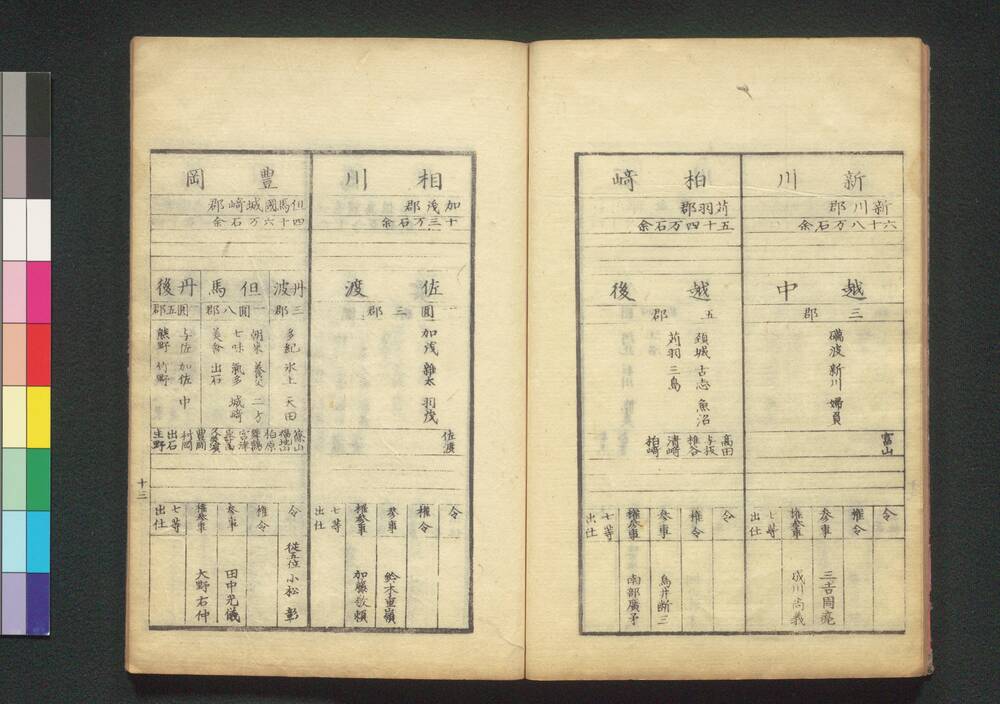 新川
新川郡
六十八万石余
越中
三郡
礪波 新川 婦負
富山
令
権令
参事
三吉周亮
権参事
成川尚義
七等
出仕
柏﨑
苅羽郡
五十四万石余
越後
五郡
頚城 古志 魚沼
苅羽 三島
高田
与板
椎谷
清﨑
柏﨑
令
権令
参事
鳥井断三
権参事
南部廣矛
七等
出仕
相川
加茂郡
十三万石余
佐渡
一圓三郡
加茂 雜太 羽茂
佐渡
令
権令
参事
鈴木重嶺
権参事
加藤敬頼
七等
出仕
豊岡
但馬國城﨑郡
四十六万石余
丹波
三郡
多紀 氷上 天田
但馬
一圓八郡
朝来 養父 二方
七味 氣多 城﨑
美含 出石
丹後
一圓五郡
与佐 加佐 中
熊野 竹野
篠山
福知山
柏原
舞鶴
宮津
峯山
久美濱
豊岡
村岡
出石
生野
令
従五位 小松 彰
権令
参事
田中光儀
権参事
大野右仲
七等
出仕
十三